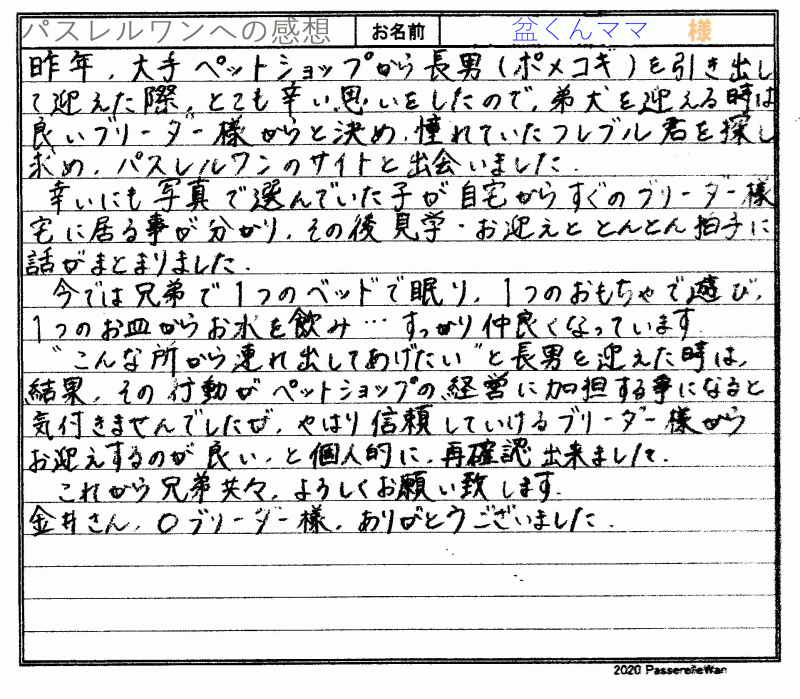 パスレルワンへの感想 お名前 盆くんママ 様
昨年、大手ペットショップから長男(ポメコギ)を引き出し
て迎えた際、とても辛い思いをしたので、弟犬を迎える時は
良いブリーダー様からと決め、憧れていたフレブル君を探し
求め、パスレルワンのサイトと出会いました。
幸いにも写真で選んでいた子が自宅からすぐのブリーダー様
宅に居る事が分かり、その後見学・お迎えととんとん拍子に
話がまとまりました。
今では兄弟で1つのベッドで眠り、1つのおもちゃで遊び、
1つのお皿からお水を飲み…すっかり仲良くなっています。
"こんな所から連れ出してあげたい"と長男を迎えた時は、
結果、その行動がペットショップの経営に加担する事になると
気付きませんでしたが、やはり信頼していけるブリーダー様から
お迎えするのが良い、と個人的に、再確認出来ました。
これから兄弟共々、よろしくお願い致します。
金井さん、〇ブリーダー様、ありがとうございました。
2020 PasserelleWan